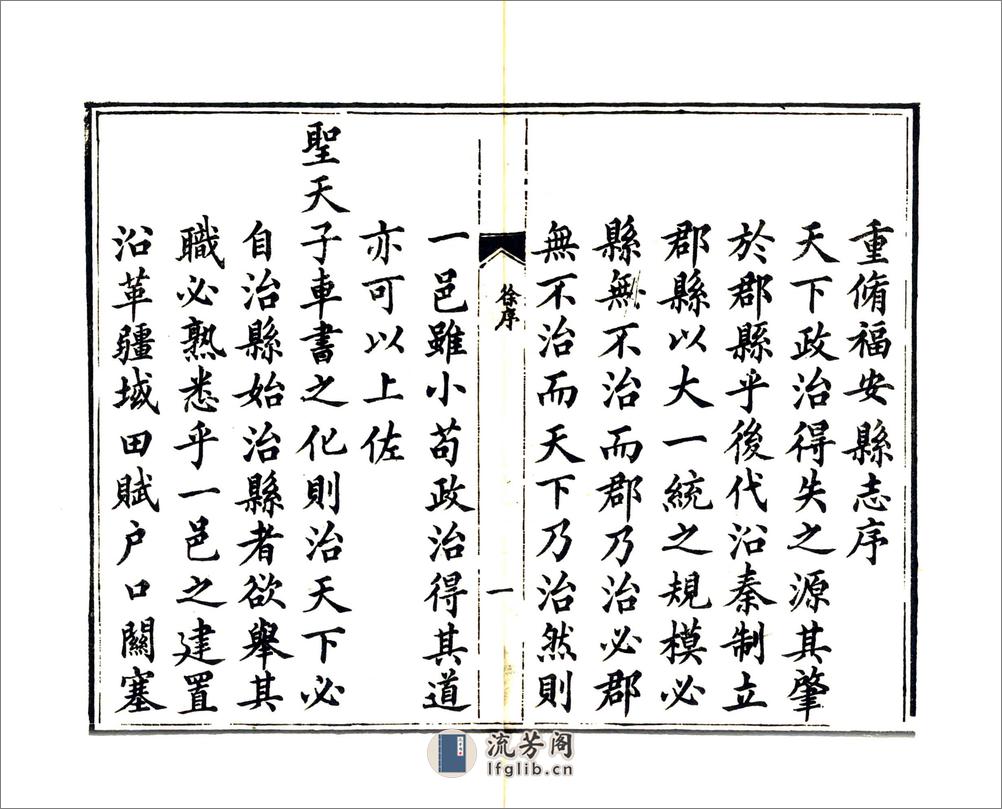 重脩福安縣志序
天下政治得失之源其肇
於郡縣乎後代沿秦制立
郡縣以大一統之規模必
縣無不治而郡乃治必郡
無不治而天下乃治然則
徐序
一
一邑雖小苟政治得其道
亦可以上佐
聖天子車書之化則治天下必
自治縣始治縣者欲舉其
職必熟悉乎一邑之建置
沿革疆域田賦户口關塞
流芳阁
lfglib.cn